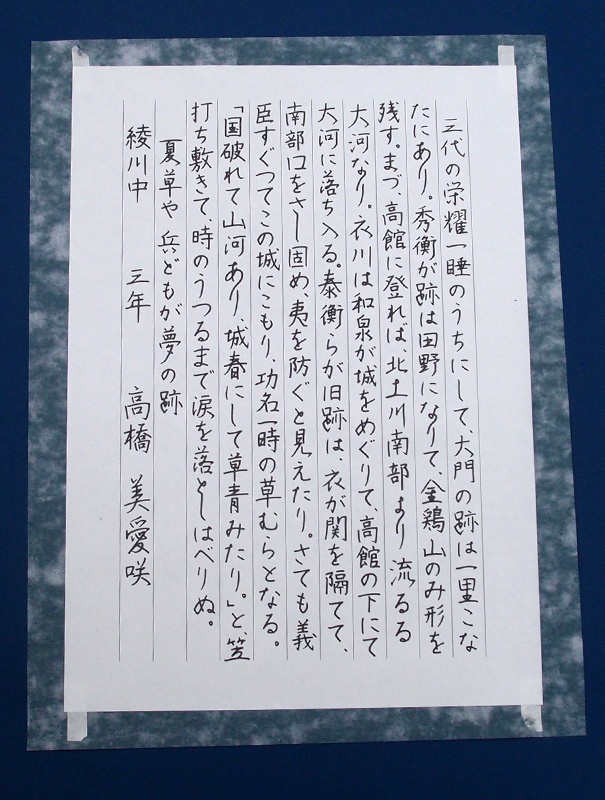 三代の栄耀一睡のうちにして、大門の跡は一里こな
たにあり。秀衡が跡は田野になりて、金鶏山のみ形を
残す。まづ、高館に登れば北上川南部より流るる
大河なり。衣川は和泉が城をめぐりて、高館の下にて
大河に落ち入る。泰衡らが旧跡は、衣が関を隔てて、
南部口をさし固め、夷を防ぐと見えたり。さても義
臣すぐつてこの城にこもり、功名一時の草むらとなる。
「国破れて山河あり、城春にして草青みたり。」と、笠
打ち敷きて、時のうつるまで涙を落としはべりぬ。
夏草や 兵どもが夢の跡
綾川中 三年 高橋 美愛咲